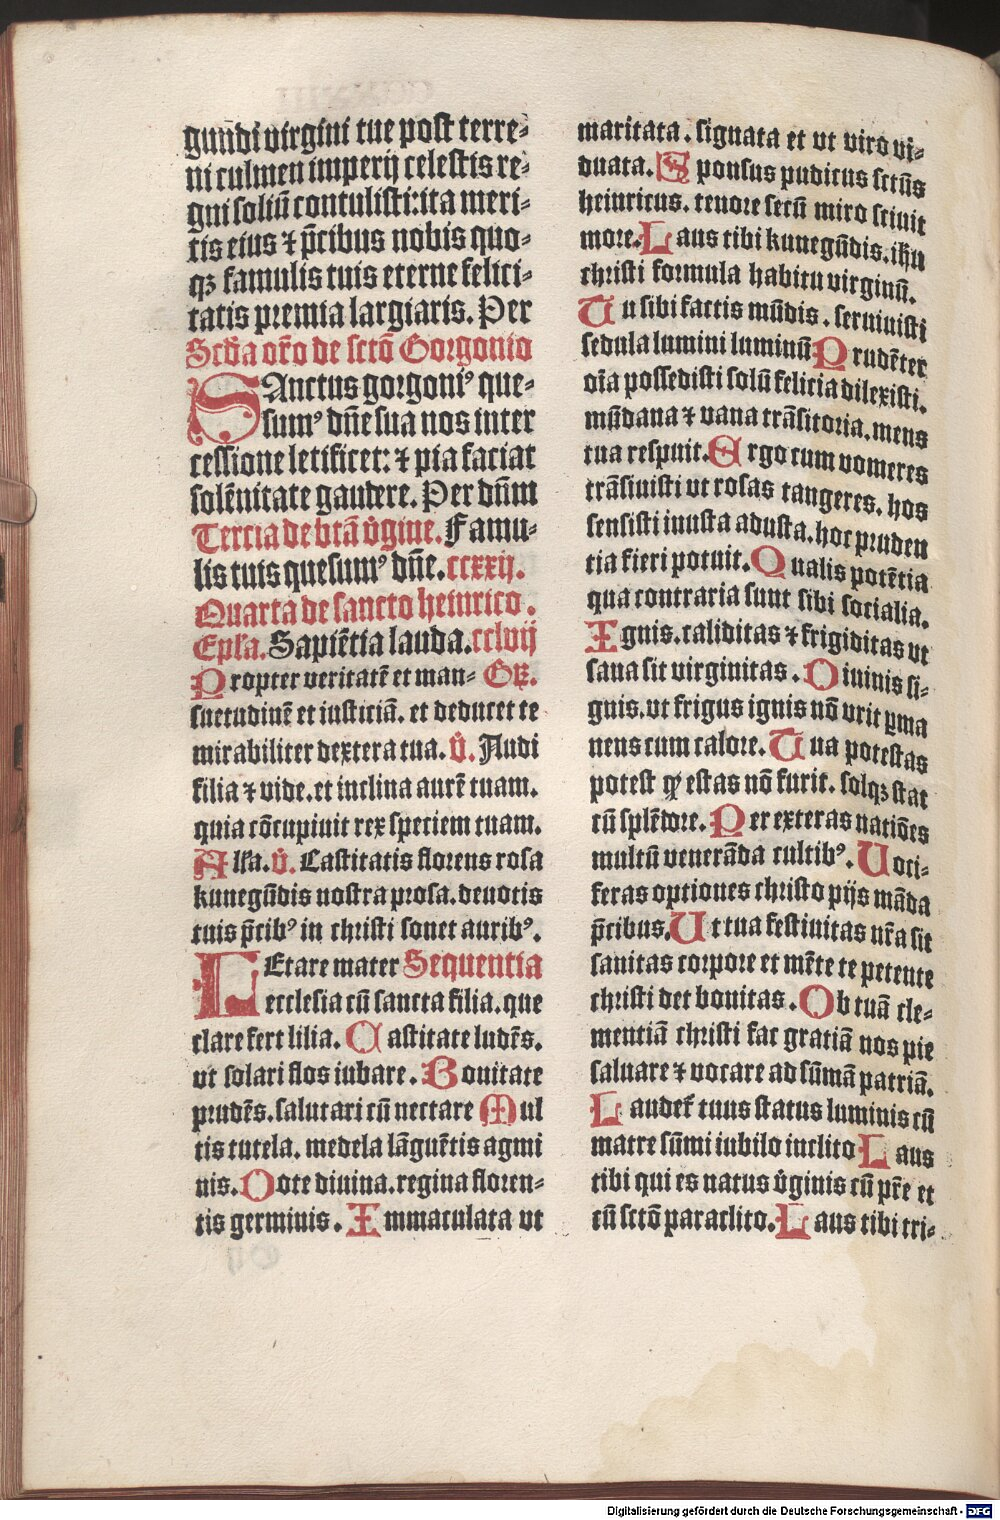 gundi virgini tue post terre⸗
ni culmen imperij celestis re⸗
gni soliū contulisti: ita meri⸗
tis eius ⁊ p̄cibus nobis quo⸗
qꝫ famulis tuis eterne felici⸗
tatis premia largiaris. Per
Scd̄a or̄o de sctō Gorgonio
SAnctus gorgoniꝰ que⸗
sumꝰ dn̄e sua nos inter
cessione letificet: ⁊ pia faciat
solēnitate gaudere. Per dn̄m
Tercia de btā v̄gine. Famu⸗
lis tuis quesumꝰ dn̄e. ccxxij.
Quarta de sancto heinrico.
Epl̄a. Sapiētia lauda. cclvij
Propter veritatē et man⸗ GR.
suetudinē et iusticiā. et deducet te
mirabiliter dextera tua. V̄. Audi
filia ⁊ vide. et inclina aurē tuam.
quia cōcupiuit rex speciem tuam.
Alla. V̄. Castitatis florens rosa
kunegūdis nostra prosa. deuotis
tuis p̄cibꝰ in christi sonet auribꝰ.
LEtare mater Sequentia
ecclesia cū sancta filia. que
clare fert lilia. Castitate ludēs.
vt solari flos iubare. Bonitate
prudēs. salutari cū nectare Mul
tis tutela. medela lāguētis agmi
nis. Dote diuina. regina floren⸗
tis germinis. Immaculata vt
maritata. signata et vt viro vi⸗
duata. Sponsus pudicus sctūs
heinricus. tenore secū miro sciuit
more. Laus tibi kunegūdis. ihu
christi formula habitu virginū.
Tu sibi factis mūdis. seruiuisti
sedula lumini luminū Prudēter
oīa possedisti solū felicia dilexisti.
mūdana ⁊ vana trāsitoria. mens
tua respuit. Ergo cum vomeres
trāsiuisti vt rosas tangeres. hos
sensisti inusta adusta. hoc pruden
tia fieri potuit. Qualis potētia
qua contraria sunt sibi socialia.
Ignis. caliditas ⁊ frigiditas vt
sana sit virginitas. Diuinis si⸗
gnis. vt frigus ignis nō vrit ꝑma
nens cum calore. Tua potestas
potest ꝙ estas nō furit. solqꝫ stat
cū splēdore. Per exteras natiōes
multū venerāda cultibꝰ. Uoci⸗
feras optiones christo pijs māda
p̄cibus. Ut tua festiuitas nr̄a sit
sanitas corpore et mēte te petente
christi det bonitas. Ob tuā cle⸗
mentiā christi fac gratiā nos pie
saluare ⁊ vocare ad sūmā patriā.
Laudet tuus status luminis cū
matre sūmi iubilo inclito Laus
tibi qui es natus v̄ginis cū pr̄e et
cū sctō paraclito. Laus tibi tri⸗
Digitalisierung gefördert durch die Deutsche Forschungsgemeinschaft - DFG